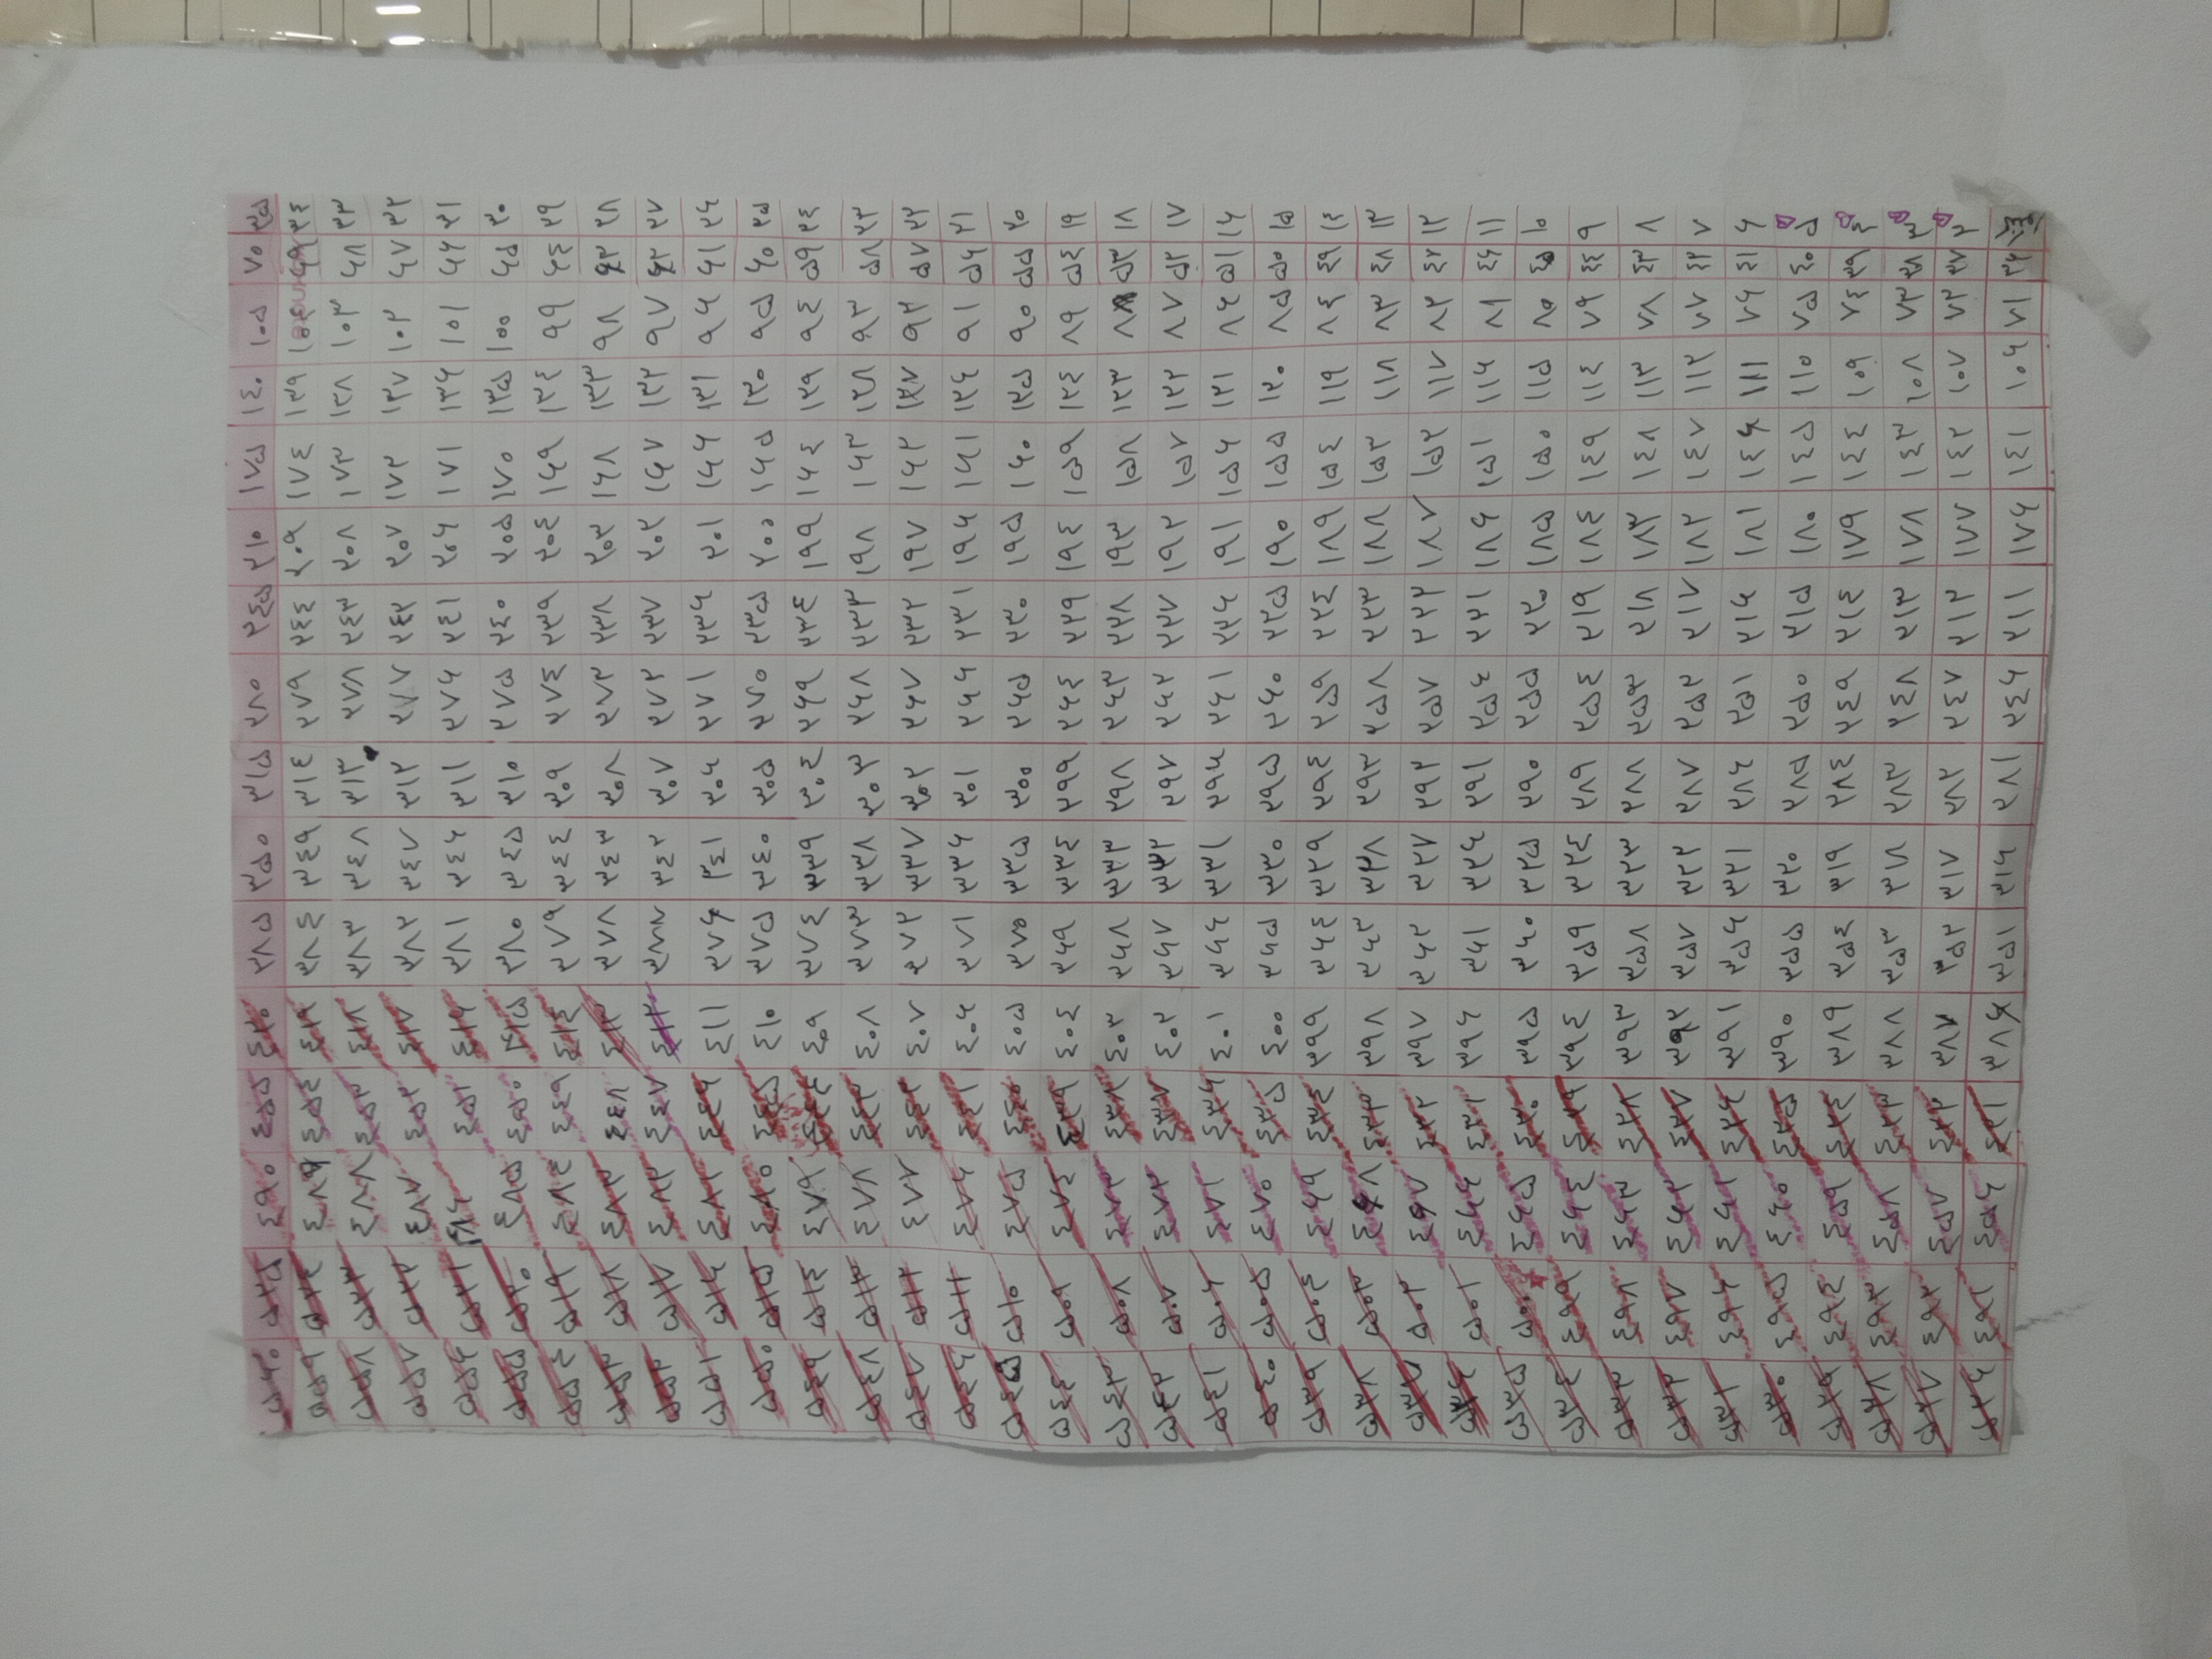 ٥٦٠ ٥٢٥ ٤٩٠ ٤٥٥ ٤٢٠ ٣٨٥ ٣٥٠ ٣١٥ ٢٨٠ ٢٤٥ ٢١٠ ١٧٥ ١٤٠ ١٠٥ ٧٠ ٣٥
٥٥٩ ٥٢٤ ٤٨٩ ٤٥٤ ٤١٩ ٣٨٤ ٣٤٩ ٣١٤ ٢٧٩ ٢٤٤ ٢٠٩ ١٧٤ ١٣٩ ١٠٤ ٦٩ ٣٤
٥٥٨ ٥٢٣ ٤٨٨ ٤٥٣ ٤١٨ ٣٨٣ ٣٤٨ ٣١٣ ٢٧٨ ٢٤٣ ٢٠٨ ١٧٣ ١٣٨ ١٠٣ ٦٨ ٣٣
٥٥٧ ٥٢٢ ٤٨٧ ٤٥٢ ٤١٧ ٣٨٢ ٣٤٧ ٣١٢ ٢٧٧ ٢٤٢ ٢٠٧ ١٧٢ ١٣٧ ١٠٢ ٦٧ ٣٢
٥٥٦ ٥٢١ ٤٨٦ ٤٥١ ٤١٦ ٣٨١ ٣٤٦ ٣١١ ٢٧٦ ٢٤١ ٢٠٦ ١٧١ ١٣٦ ١٠١ ٦٦ ٣١
٥٥٥ ٥٢٠ ٤٨٥ ٤٥٠ ٤١٥ ٣٨٠ ٣٤٥ ٣١٠ ٢٧٥ ٢٤٠ ٢٠٥ ١٧٠ ١٣٥ ١٠٠ ٦٥ ٣٠
٥٥٤ ٥١٩ ٤٨٤ ٤٤٩ ٤١٤ ٣٧٩ ٣٤٤ ٣٠٩ ٢٧٤ ٢٣٩ ٢٠٤ ١٦٩ ١٣٤ ٩٩ ٦٤ ٢٩
٥٥٣ ٥١٨ ٤٨٣ ٤٤٨ ٤١٣ ٣٧٨ ٣٤٣ ٣٠٨ ٢٧٣ ٢٣٨ ٢٠٣ ١٦٨ ١٣٣ ٩٨ ٦٣ ٢٨
٥٥٢ ٥١٧ ٤٨٢ ٤٤٧ ٤١٢ ٣٧٧ ٣٤٢ ٣٠٧ ٢٧٢ ٢٣٧ ٢٠٢ ١٦٧ ١٣٢ ٩٧ ٦٢ ٢٧
٥٥١ ٥١٦ ٤٨١ ٤٤٦ ٤١١ ٣٧٦ ٣٤١ ٣٠٦ ٢٧١ ٢٣٦ ٢٠١ ١٦٦ ١٣١ ٩٦ ٦١ ٢٦
٥٥٠ ٥١٥ ٤٨٠ ٤٤٥ ٤١٠ ٣٧٥ ٣٤٠ ٣٠٥ ٢٧٠ ٢٣٥ ٢٠٠ ١٦٥ ١٣٠ ٩٥ ٦٠ ٢٥
٥٤٩ ٥١٤ ٤٧٩ ٤٤٤ ٤٠٩ ٣٧٤ ٣٣٩ ٣٠٤ ٢٦٩ ٢٣٤ ١٩٩ ١٦٤ ١٢٩ ٩٤ ٥٩ ٢٤
٥٤٨ ٥١٣ ٤٧٨ ٤٤٣ ٤٠٨ ٣٧٣ ٣٣٨ ٣٠٣ ٢٦٨ ٢٣٣ ١٩٨ ١٦٣ ١٢٨ ٩٣ ٥٨ ٢٣
٥٤٧ ٥١٢ ٤٧٧ ٤٤٢ ٤٠٧ ٣٧٢ ٣٣٧ ٣٠٢ ٢٦٧ ٢٣٢ ١٩٧ ١٦٢ ١٢٧ ٩٢ ٥٧ ٢٢
٥٤٦ ٥١١ ٤٧٦ ٤٤١ ٤٠٦ ٣٧١ ٣٣٦ ٣٠١ ٢٦٦ ٢٣١ ١٩٦ ١٦١ ١٢٦ ٩١ ٥٦ ٢١
٥٤٥ ٥١٠ ٤٧٥ ٤٤٠ ٤٠٥ ٣٧٠ ٣٣٥ ٣٠٠ ٢٦٥ ٢٣٠ ١٩٥ ١٦٠ ١٢٥ ٩٠ ٥٥ ٢٠
٥٤٤ ٥٠٩ ٤٧٤ ٤٣٩ ٤٠٤ ٣٦٩ ٣٣٤ ٢٩٩ ٢٦٤ ٢٢٩ ١٩٤ ١٥٩ ١٢٤ ٨٩ ٥٤ ١٩
٥٤٣ ٥٠٨ ٤٧٣ ٤٣٨ ٤٠٣ ٣٦٨ ٣٣٣ ٢٩٨ ٢٦٣ ٢٢٨ ١٩٣ ١٥٨ ١٢٣ ٨٨ ٥٣ ١٨
٥٤٢ ٥٠٧ ٤٧٢ ٤٣٧ ٤٠٢ ٣٦٧ ٣٣٢ ٢٩٧ ٢٦٢ ٢٢٧ ١٩٢ ١٥٧ ١٢٢ ٨٧ ٥٢ ١٧
٥٤١ ٥٠٦ ٤٧١ ٤٣٦ ٤٠١ ٣٦٦ ٣٣١ ٢٩٦ ٢٦١ ٢٢٦ ١٩١ ١٥٦ ١٢١ ٨٦ ٥١ ١٦
٥٤٠ ٥٠٥ ٤٧٠ ٤٣٥ ٤٠٠ ٣٦٥ ٣٣٠ ٢٩٥ ٢٦٠ ٢٢٥ ١٩٠ ١٥٥ ١٢٠ ٨٥ ٥٠ ١٥
٥٣٩ ٥٠٤ ٤٦٩ ٤٣٤ ٣٩٩ ٣٦٤ ٣٢٩ ٢٩٤ ٢٥٩ ٢٢٤ ١٨٩ ١٥٤ ١١٩ ٨٤ ٤٩ ١٤
٥٣٨ ٥٠٣ ٤٦٨ ٤٣٣ ٣٩٨ ٣٦٣ ٣٢٨ ٢٩٣ ٢٥٨ ٢٢٣ ١٨٨ ١٥٣ ١١٨ ٨٣ ٤٨ ١٣
٥٣٧ ٥٠٢ ٤٦٧ ٤٣٢ ٣٩٧ ٣٦٢ ٣٢٧ ٢٩٢ ٢٥٧ ٢٢٢ ١٨٧ ١٥٢ ١١٧ ٨٢ ٤٧ ١٢
٥٣٦ ٥٠١ ٤٦٦ ٤٣١ ٣٩٦ ٣٦١ ٣٢٦ ٢٩١ ٢٥٦ ٢٢١ ١٨٦ ١٥١ ١١٦ ٨١ ٤٦ ١١
٥٣٥ ٥٠٠ ٤٦٥ ٤٣٠ ٣٩٥ ٣٦٠ ٣٢٥ ٢٩٠ ٢٥٥ ٢٢٠ ١٨٥ ١٥٠ ١١٥ ٨٠ ٤٥ ١٠
٥٣٤ ٤٩٩ ٤٦٤ ٤٢٩ ٣٩٤ ٣٥٩ ٣٢٤ ٢٨٩ ٢٥٤ ٢١٩ ١٨٤ ١٤٩ ١١٤ ٧٩ ٤٤ ٩
٥٣٣ ٤٩٨ ٤٦٣ ٤٢٨ ٣٩٣ ٣٥٨ ٣٢٣ ٢٨٨ ٢٥٣ ٢١٨ ١٨٣ ١٤٨ ١١٣ ٧٨ ٤٣ ٨
٥٣٢ ٤٩٧ ٤٦٢ ٤٢٧ ٣٩٢ ٣٥٧ ٣٢٢ ٢٨٧ ٢٥٢ ٢١٧ ١٨٢ ١٤٧ ١١٢ ٧٧ ٤٢ ٧
٥٣١ ٤٩٦ ٤٦١ ٤٢٦ ٣٩١ ٣٥٦ ٣٢١ ٢٨٦ ٢٥١ ٢١٦ ١٨١ ١٤٦ ١١١ ٧٦ ٤١ ٦
٥٣٠ ٤٩٥ ٤٦٠ ٤٢٥ ٣٩٠ ٣٥٥ ٣٢٠ ٢٨٥ ٢٥٠ ٢١٥ ١٨٠ ١٤٥ ١١٠ ٧٥ ٤٠ ٥
٥٢٩ ٤٩٤ ٤٥٩ ٤٢٤ ٣٨٩ ٣٥٤ ٣١٩ ٢٨٤ ٢٤٩ ٢١٤ ١٧٩ ١٤٤ ١٠٩ ٧٤ ٣٩ ٤
٥٢٨ ٤٩٣ ٤٥٨ ٤٢٣ ٣٨٨ ٣٥٣ ٣١٨ ٢٨٣ ٢٤٨ ٢١٣ ١٧٨ ١٤٣ ١٠٨ ٧٣ ٣٨ ٣
٥٢٧ ٤٩٢ ٤٥٧ ٤٢٢ ٣٨٧ ٣٥٢ ٣١٧ ٢٨٢ ٢٤٧ ٢١٢ ١٧٧ ١٤٢ ١٠٧ ٧٢ ٣٧ ٢
٥٢٦ ٤٩١ ٤٥٦ ٤٢١ ٣٨٦ ٣٥١ ٣١٦ ٢٨١ ٢٤٦ ٢١١ ١٧٦ ١٤١ ١٠٦ ٧١ ٣٦